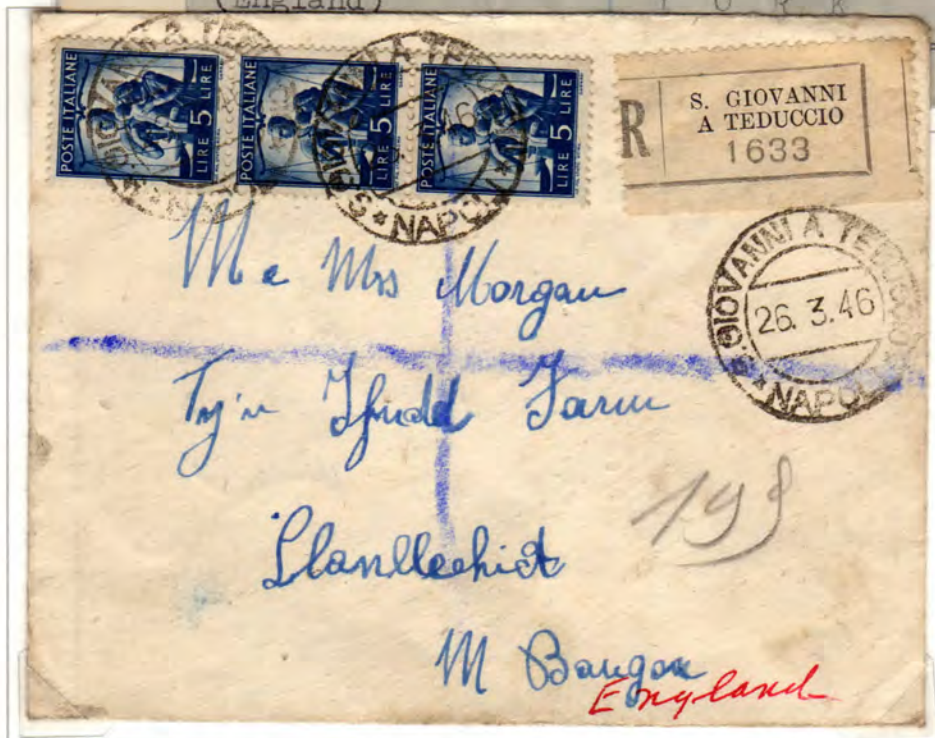 (England)
Y O R K
POSTE ITALIANE
LIRE 5 LIRE
POSTE ITALIANE
LIRE 5 LIRE
POSTE ITALIANE
LIRE 5 LIRE
S. GIOVANNI A TEDUCCIO
* NAPOLI *
R
S. GIOVANNI
A TEDUCCIO
1633
S. GIOVANNI A TEDUCCIO
26. 3. 46
* NAPOLI *
M e Mrs Morgan
Ty'n Farm
Llanllechid
198
M Bangor
England